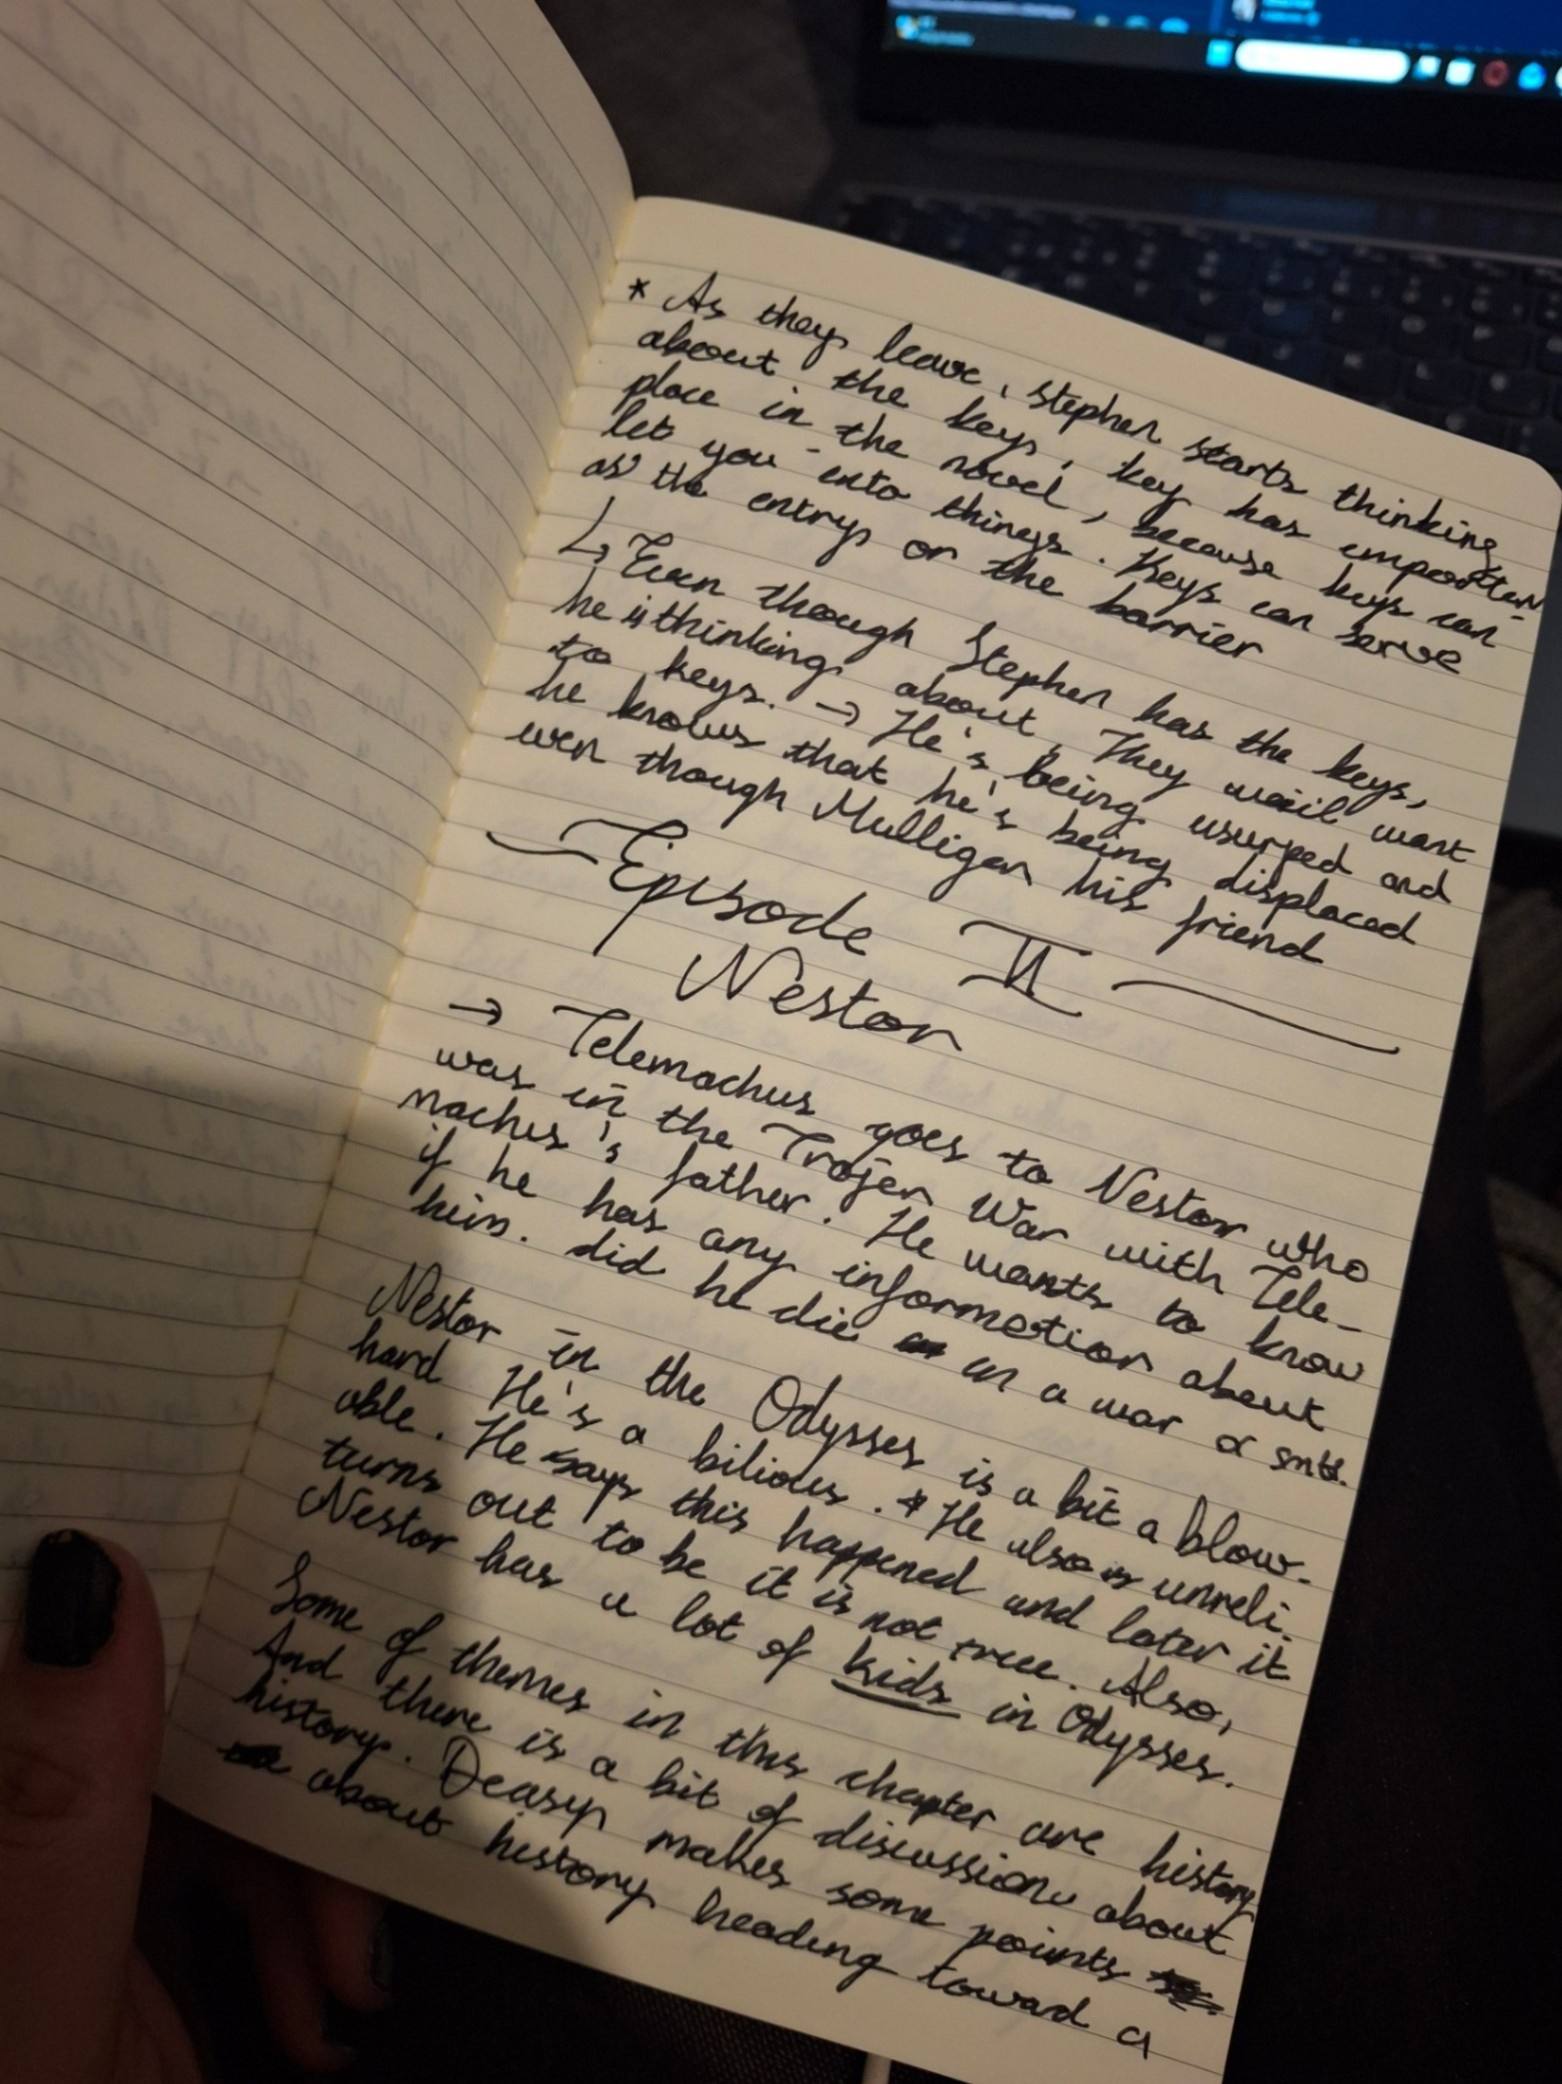 * As they leave, Stephen starts thinking
about the key, key has importan-
place in the novel, because keys can
let you into things. Keys can serve
as the entry or the barrier
↳ Even though Stephen has the keys,
he is thinking about They will want
to keys. → He's being usurped and
he knows that he's being displaced
even though Mulligan his friend
Episode II
Nestor
→ Telemachus goes to Nestor who
was in the Trojan War with Tele-
machus's father. He wants to know
if he has any information about
him. did he die in a war or smth.
Nestor in the Odysses is a bit a blow-
hard He's a bilious. * He also is unreli-
able. He says this happened and later it
turns out to be it is not true. Also,
Nestor has a lot of kids in Odysses.
Some of themes in this chapter are history
And there is a bit of discussion about
history. Deasy makes some points
about history heading toward a